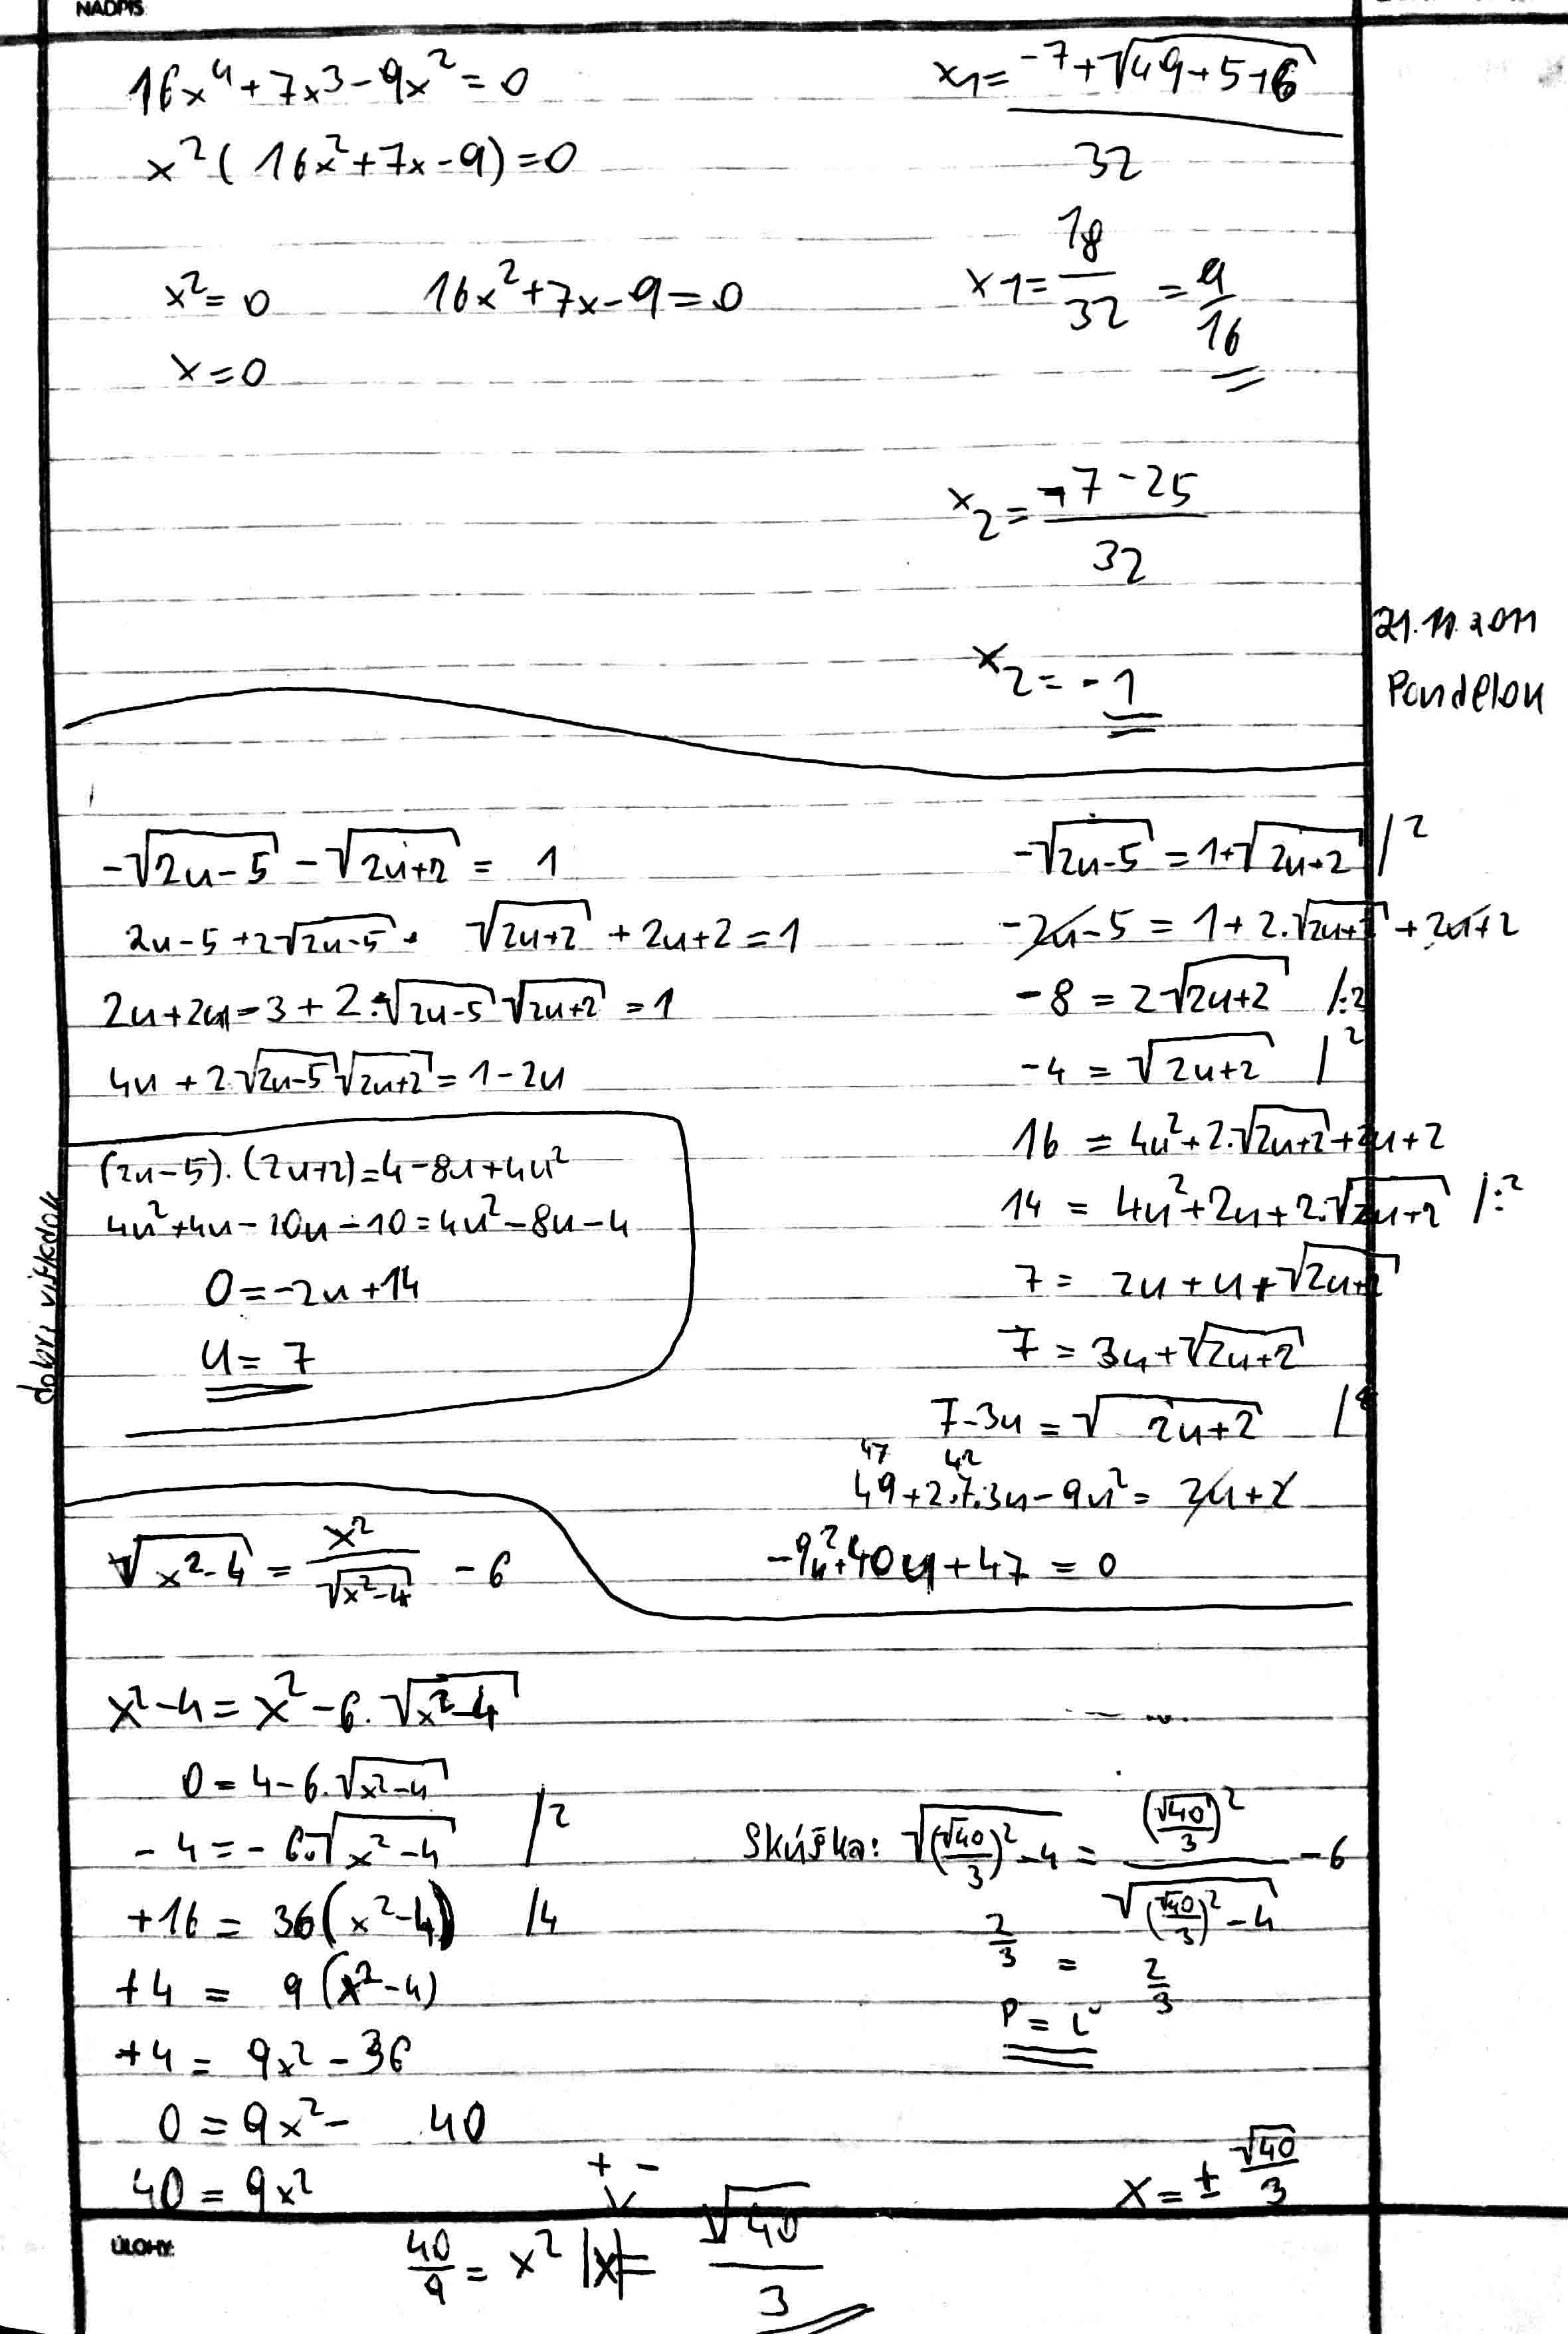 NADPIS
16x⁴+7x³-9x²=0
x²(16x²+7x-9)=0
x²=0 16x²+7x-9=0
x=0
x1= -7+√49+576
32
x1= 18/32 = 9/16
x2= -7-25
32
x2=-1
21.11.2011
Pondelok
-√2u-5 -√2u+2 = 1
2u-5+2√2u-5 · √2u+2 +2u+2=1
2u+2u-3+2·√2u-5 √2u+2 =1
4u+2√2u-5 √2u+2 =1-2u
(2u-5).(2u+2)=4-8u+4u²
4u²+4u-10u-10=4u²-8u-4
0=-2u+14
u=7
-√2u-5 =1+√2u+2 /²
-2u-5=1+2.√2u+2 +2u+2
-8=2√2u+2 /:2
-4=√2u+2 /²
16=4u²+2.√2u+2+2u+2
14=4u²+2u+2.√2u+2 /:2
7=2u+u+√2u+2
7=3u+√2u+2
7-3u=√2u+2
47 42
49+2.7.3u-9u²=2u+2
-9u²+40u+47=0
√x²-4 = x²/√x²-4 -6
x²-4=x²-6.√x²-4
0=4-6.√x²-4
-4=-6.√x²-4 /²
+16=36(x²-4) /4
+4=9(x²-4)
+4=9x²-36
0=9x²- 40
40=9x²
Skúška: √(√40/3)²-4 = (√40/3)²/√(√40/3)²-4 -6
2/3 = 2/3
P=Ľ
x=± √40/3
+ -
ÚLOHY:
40/9 =x² |x|= √40/3